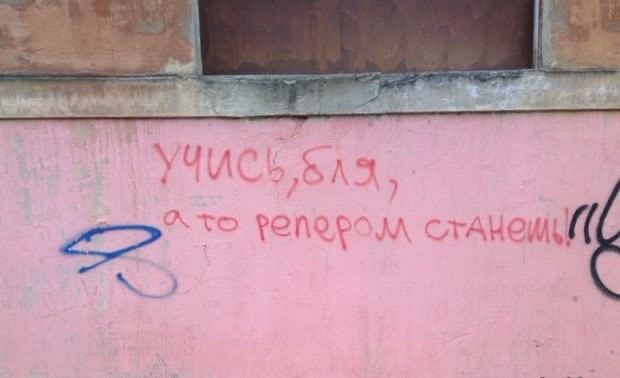 УЧИСЬ, БЛЯ,
а то РЕПЕРОМ СТАНЕШЬ!